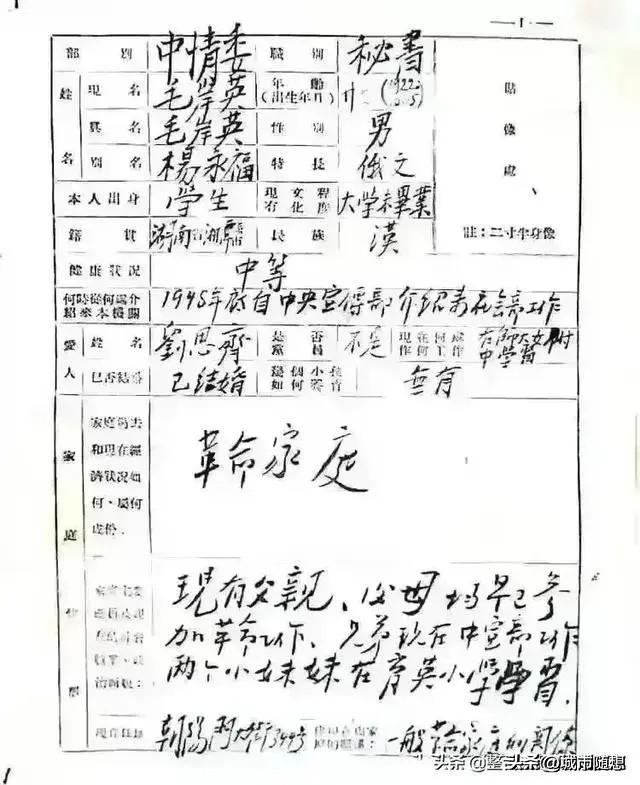 — 1 —
部別 中情委 職別 秘書
姓名 現名 毛岸英 年齡(出生年月) (1922. 貼像處
眞名 毛岸英 性別 男
別名 楊永福 特長 俄文
本人出身 學生 現有文化程度 大学未畢業 註:二寸半身像
籍貫 湖南 民族 漢
健康狀況 中等
何時從何處介紹來本機關 1948年底自中央宣傳部介紹来社会部工作
愛人 姓名 劉思齊 是否黨員 不是 現在何處作何工作 在師大女附中學習
已否結婚 已結婚 幾個小孩如何養育 無有
家庭
家庭過去和現在經濟狀況如何,屬何成份. 革命家庭
現有父親、父母均早已参
加革命工作、兄弟現在中宣部工作
两个小妹妹在育英小學學習.
現在住址 朝陽門大街 一般革命家庭的関係
头条@整头条@城市随想